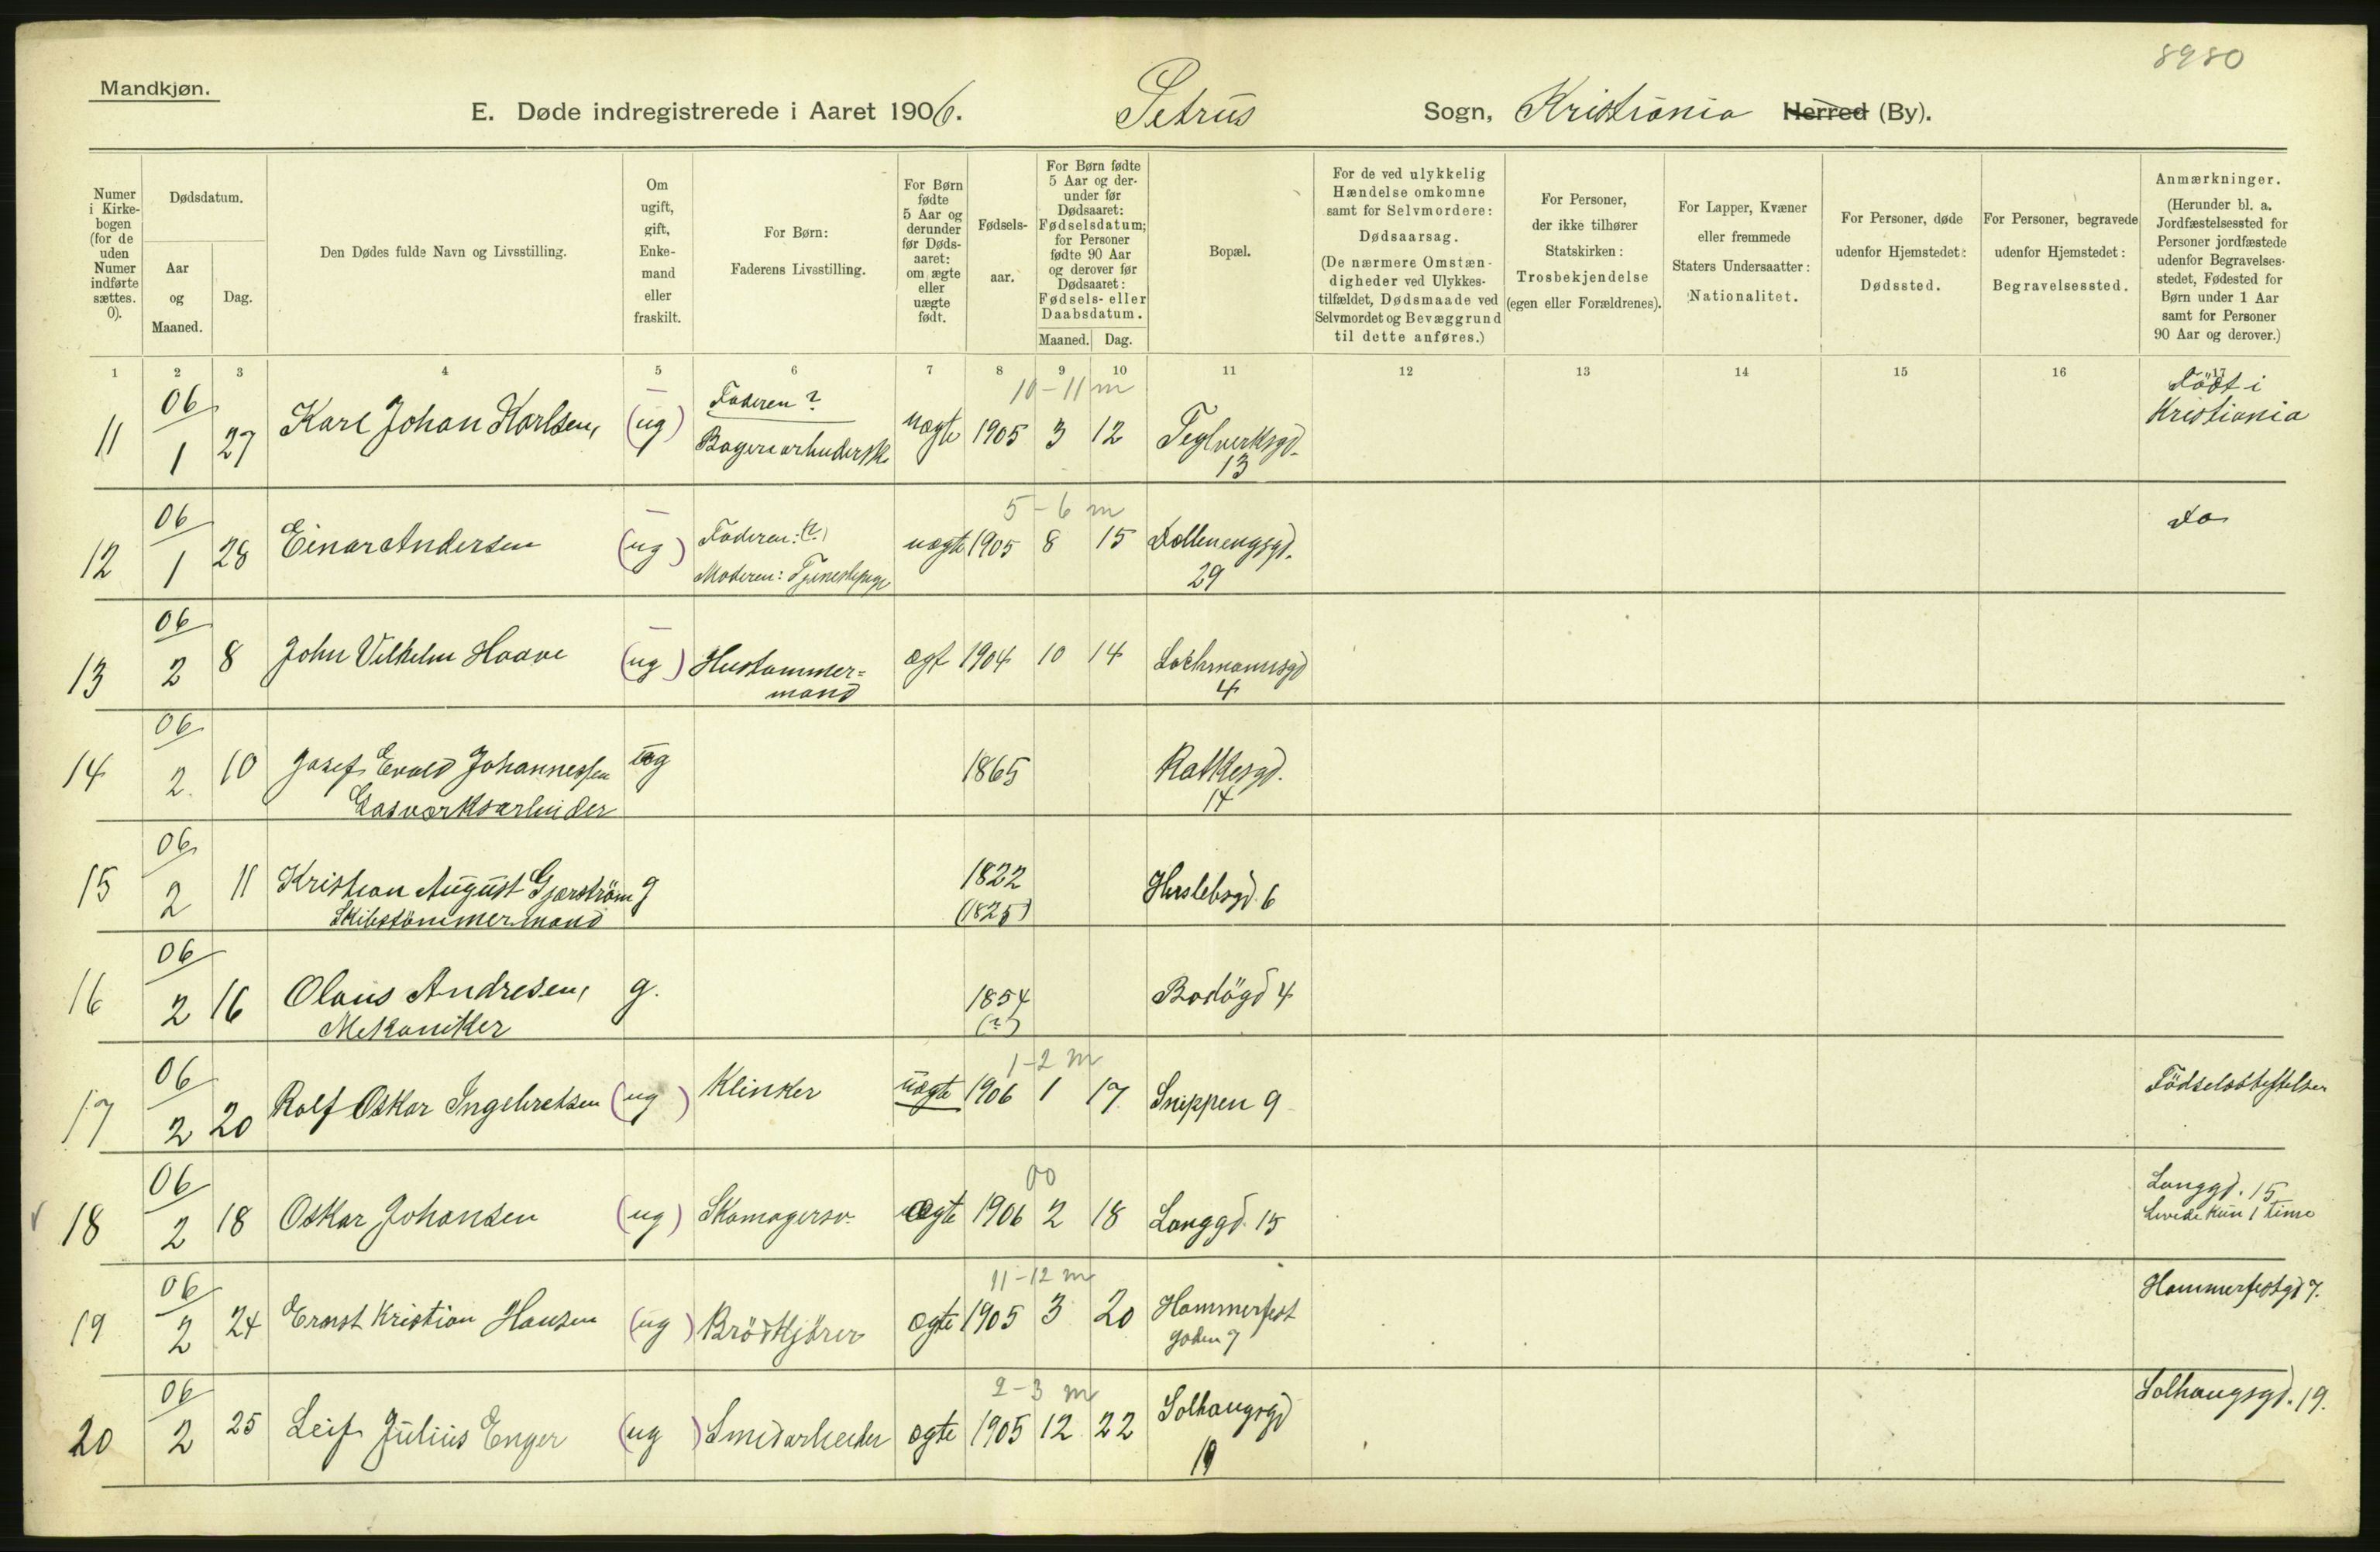 8980
Mandkjøn.
E. Døde indregistrerede i Aaret 1906. Petrus Sogn, Kristiania Herred (By).
Numer i Kirke-bogen (for de uden Numer indførte sættes. 0).
Dødsdatum.
Aar og Maaned.
Dag.
Den Dødes fulde Navn og Livsstilling.
Om ugift, gift, Enke-mand eller fraskilt.
For Børn: Faderens Livsstilling.
For Børn fødte 5 Aar og derunder før Døds-aaret: om ægte eller uægte født.
Fødsels-aar.
For Børn fødte 5 Aar og der-under før Dødsaaret: Fødselsdatum; for Personer fødte 90 Aar og derover før Dødsaaret: Fødsels- eller Daabsdatum.
Maaned. Dag.
Bopæl.
For de ved ulykkelig Hændelse omkomne samt for Selvmordere: Dødsaarsag. (De nærmere Omstæn-digheder ved Ulykkes-tilfældet, Dødsmaade ved Selvmordet og Bevæggrund til dette anføres.)
For Personer, der ikke tilhører Statskirken: Trosbekjendelse (egen eller Forældrenes).
For Lapper, Kvæner eller fremmede Staters Undersaatter: Nationalitet.
For Personer, døde udenfor Hjemstedet: Dødssted.
For Personer, begravede udenfor Hjemstedet: Begravelsessted.
Anmærkninger. (Herunder bl. a. Jordfæstelsessted for Personer jordfæstede udenfor Begravelses-stedet, Fødested for Børn under 1 Aar samt for Personer 90 Aar og derover.)
1 2 3 4 5 6 7 8 9 10 11 12 13 14 15 16 17
10-11 m
11 06/1 27 Karl Johan Karlsen, (ug) Faderen ? uægte 1905 3 12 Teglverksgd. 13 Född i Kristiania
5-6 m
12 06/1 28 Einar Andersen (ug) Faderen: (?) Moderen: Tjenestepige uægte 1905 8 15 29 do
13 06/2 8 John Vilhelm Haave (ug) Hustømmer=mand ægt 1904 10 14 Lochmannsgd 4
14 06/2 10 Josef Evald Johannessen Gasværksarbeider ug 1865 Rathkesgd. 14
15 06/2 11 Kristian August Gjærström Skibstömmermand g 1822 (1825) Herslebsgd. 6
16 06/2 16 Olaus Andresen, Mekaniker g. 1854 (?) Bodögd 4
1-2 m
17 06/2 20 Rolf Oskar Ingebretsen (ug) Klinker uægte 1906 1 17 Snippen 9 Födselsstiftelsen
00
18 06/2 18 Oskar Johansen (ug) Skomagersv. ægte 1906 2 18 Langgd. 15 Langgd. 15 Levede kun 1 time
11-12 m
19 06/2 24 Ernst Kristian Hansen (ug) Brödkjörer ægte 1905 3 20 Hammerfest gaden 7 Hammerfestgd 7.
2-3 m
20 06/2 25 Leif Julius Enger (ug) Smedarbeider ægte 1905 12 22 Solhaugsgd 19 Solhaugsgd. 19.